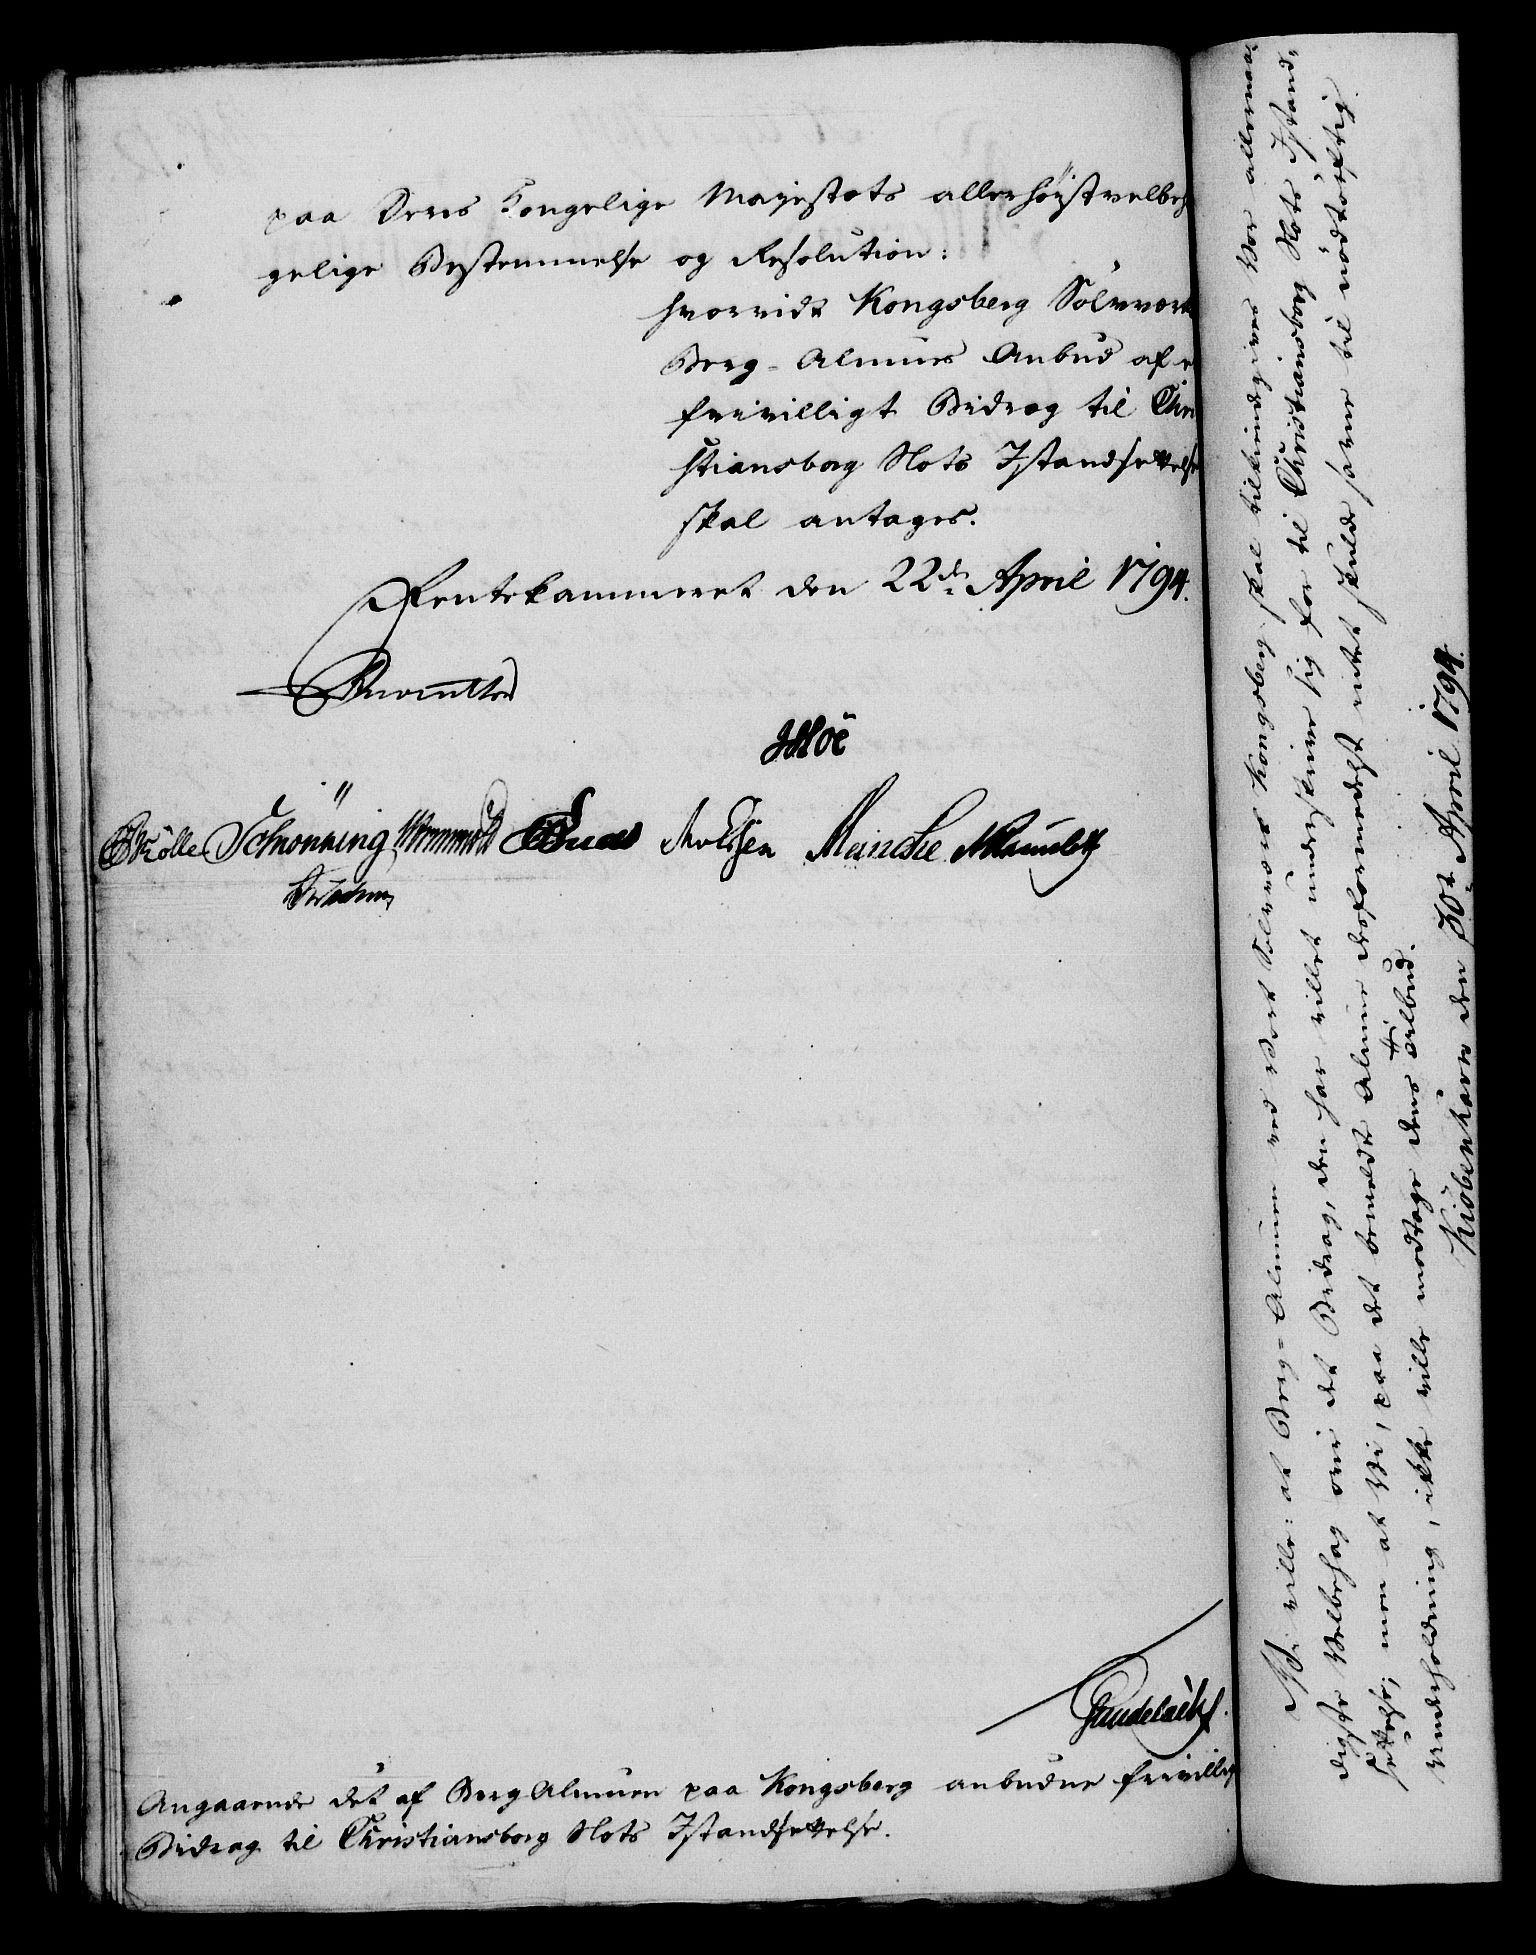 paa Deres Kongelige Majestæts allerhøistvelbeha-
gelige Bestemmelse og Resolution:
hvorvidt Kongsberg Sölvværks
Berg-Almues Anbud af et
frivilligt Bidrag til Chri
stiansborg Slots Istandsættelse
skal antages.
Rentekammeret den 22de April 1794.
JHoë
Krölle Schönning Wormskiold Meincke
Angaaende det af Berg Almuen paa Kongsberg anbudne frivillig
Bidrag til Christiansborg Slots Istandsættelse.
Vi ville: at Berg-Almuen ved Vort Sölvværk Kongsberg skal tilkiendegives Vor allernaa-
digste Velbehag over det Bidrag, den har villet underskrive sig for til Christiansborg Slots Istand-
sættelse; men at Vi, paa det bemeldte Almue desformedelst intet skulde savne til nödtörftig
Underholdning, ikke ville modtage dens Tilbud.
Kiöbenhavn den 30te April 1794.